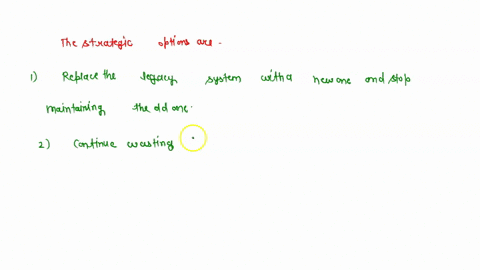 The strategic options are.
1) Replace the legacy system with a new one and stop
maintaining the old one.
2) Continue wasting